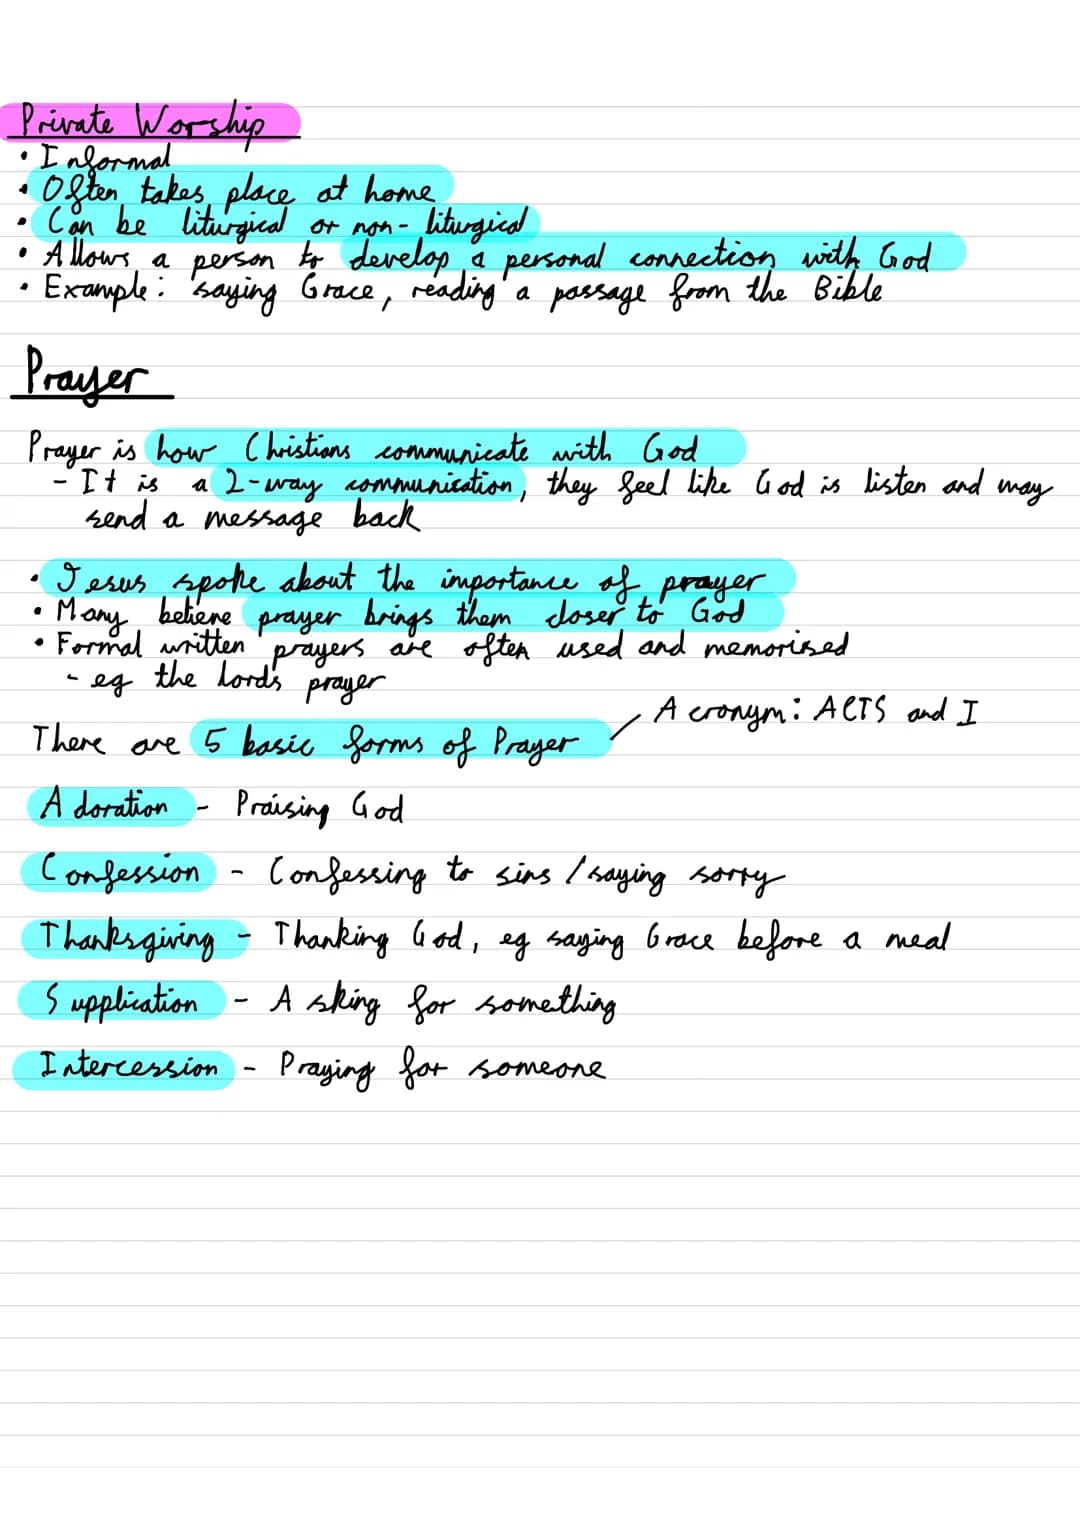 Private Worship
• Informal
• Often takes place at home
• Can be liturgical or non-liturgical
• Allows a person to develop a personal connection with God
• Example: saying Grace, reading a passage from the Bible
Prayer
Prayer is how Christians communicate with God
- It is a 2-way communication, they feel like God is listen and may
send a message back
• Jesus spoke about the importance of prayer
• Many believe prayer brings them closer to God
• Formal written prayers are often used and memorised
- eg the Lord's prayer
Acronym: ACTS and I
There are 5 basic forms of Prayer
Adoration - Praising God
Confession - Confessing to sins / saying sorry
Thanksgiving - Thanking God, eg saying Grace before a meal
Supplication - Asking for something
Intercession - Praying for someone